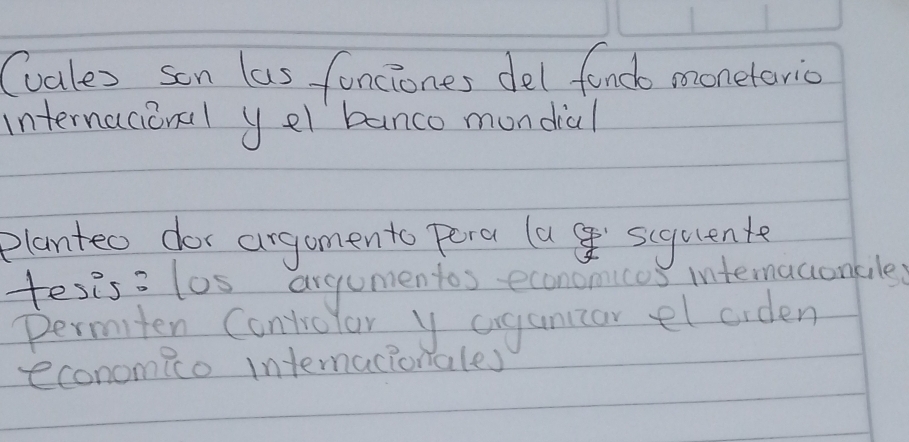 Cuales son las funciones del fondo monetario
internacional y el banco mundial
Planteo dos argumento para la siguiente
tesis: los argumentos economicos internacionales
Permiten Controlar y organizar el orden
economico internacionales